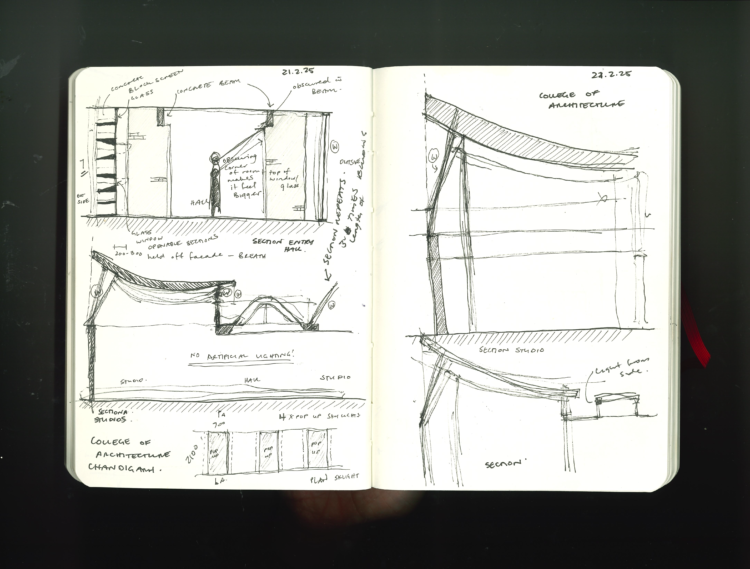 21.2.25
CONCRETE
BLOCK SCREEN
GLASS
CONCRETE BEAM
obscured
BEAM.
obscuring
corner
of room
makes
it feel
BIGGER
top of
window/
glass
HALL
OUTSIDE
GLASS
WINDOW
OPENABLE SECTIONS
SECTION ENTRY
HALL.
held off facade – BREATH
SECTION REPEATS.
TIMES
length of
NO ARTIFICIAL LIGHTING!
STUDIO.
HALL
STUDIO
SECTION A
STUDIOS.
COLLEGE OF
ARCHITECTURE
CHANDIGARH.
A
700
POP UP
2100
POP
UP
POP
UP
POP
UP
A
PLAN
22.2.25
COLLEGE OF
ARCHITECTURE
SECTION STUDIO
Light from
side.
SECTION